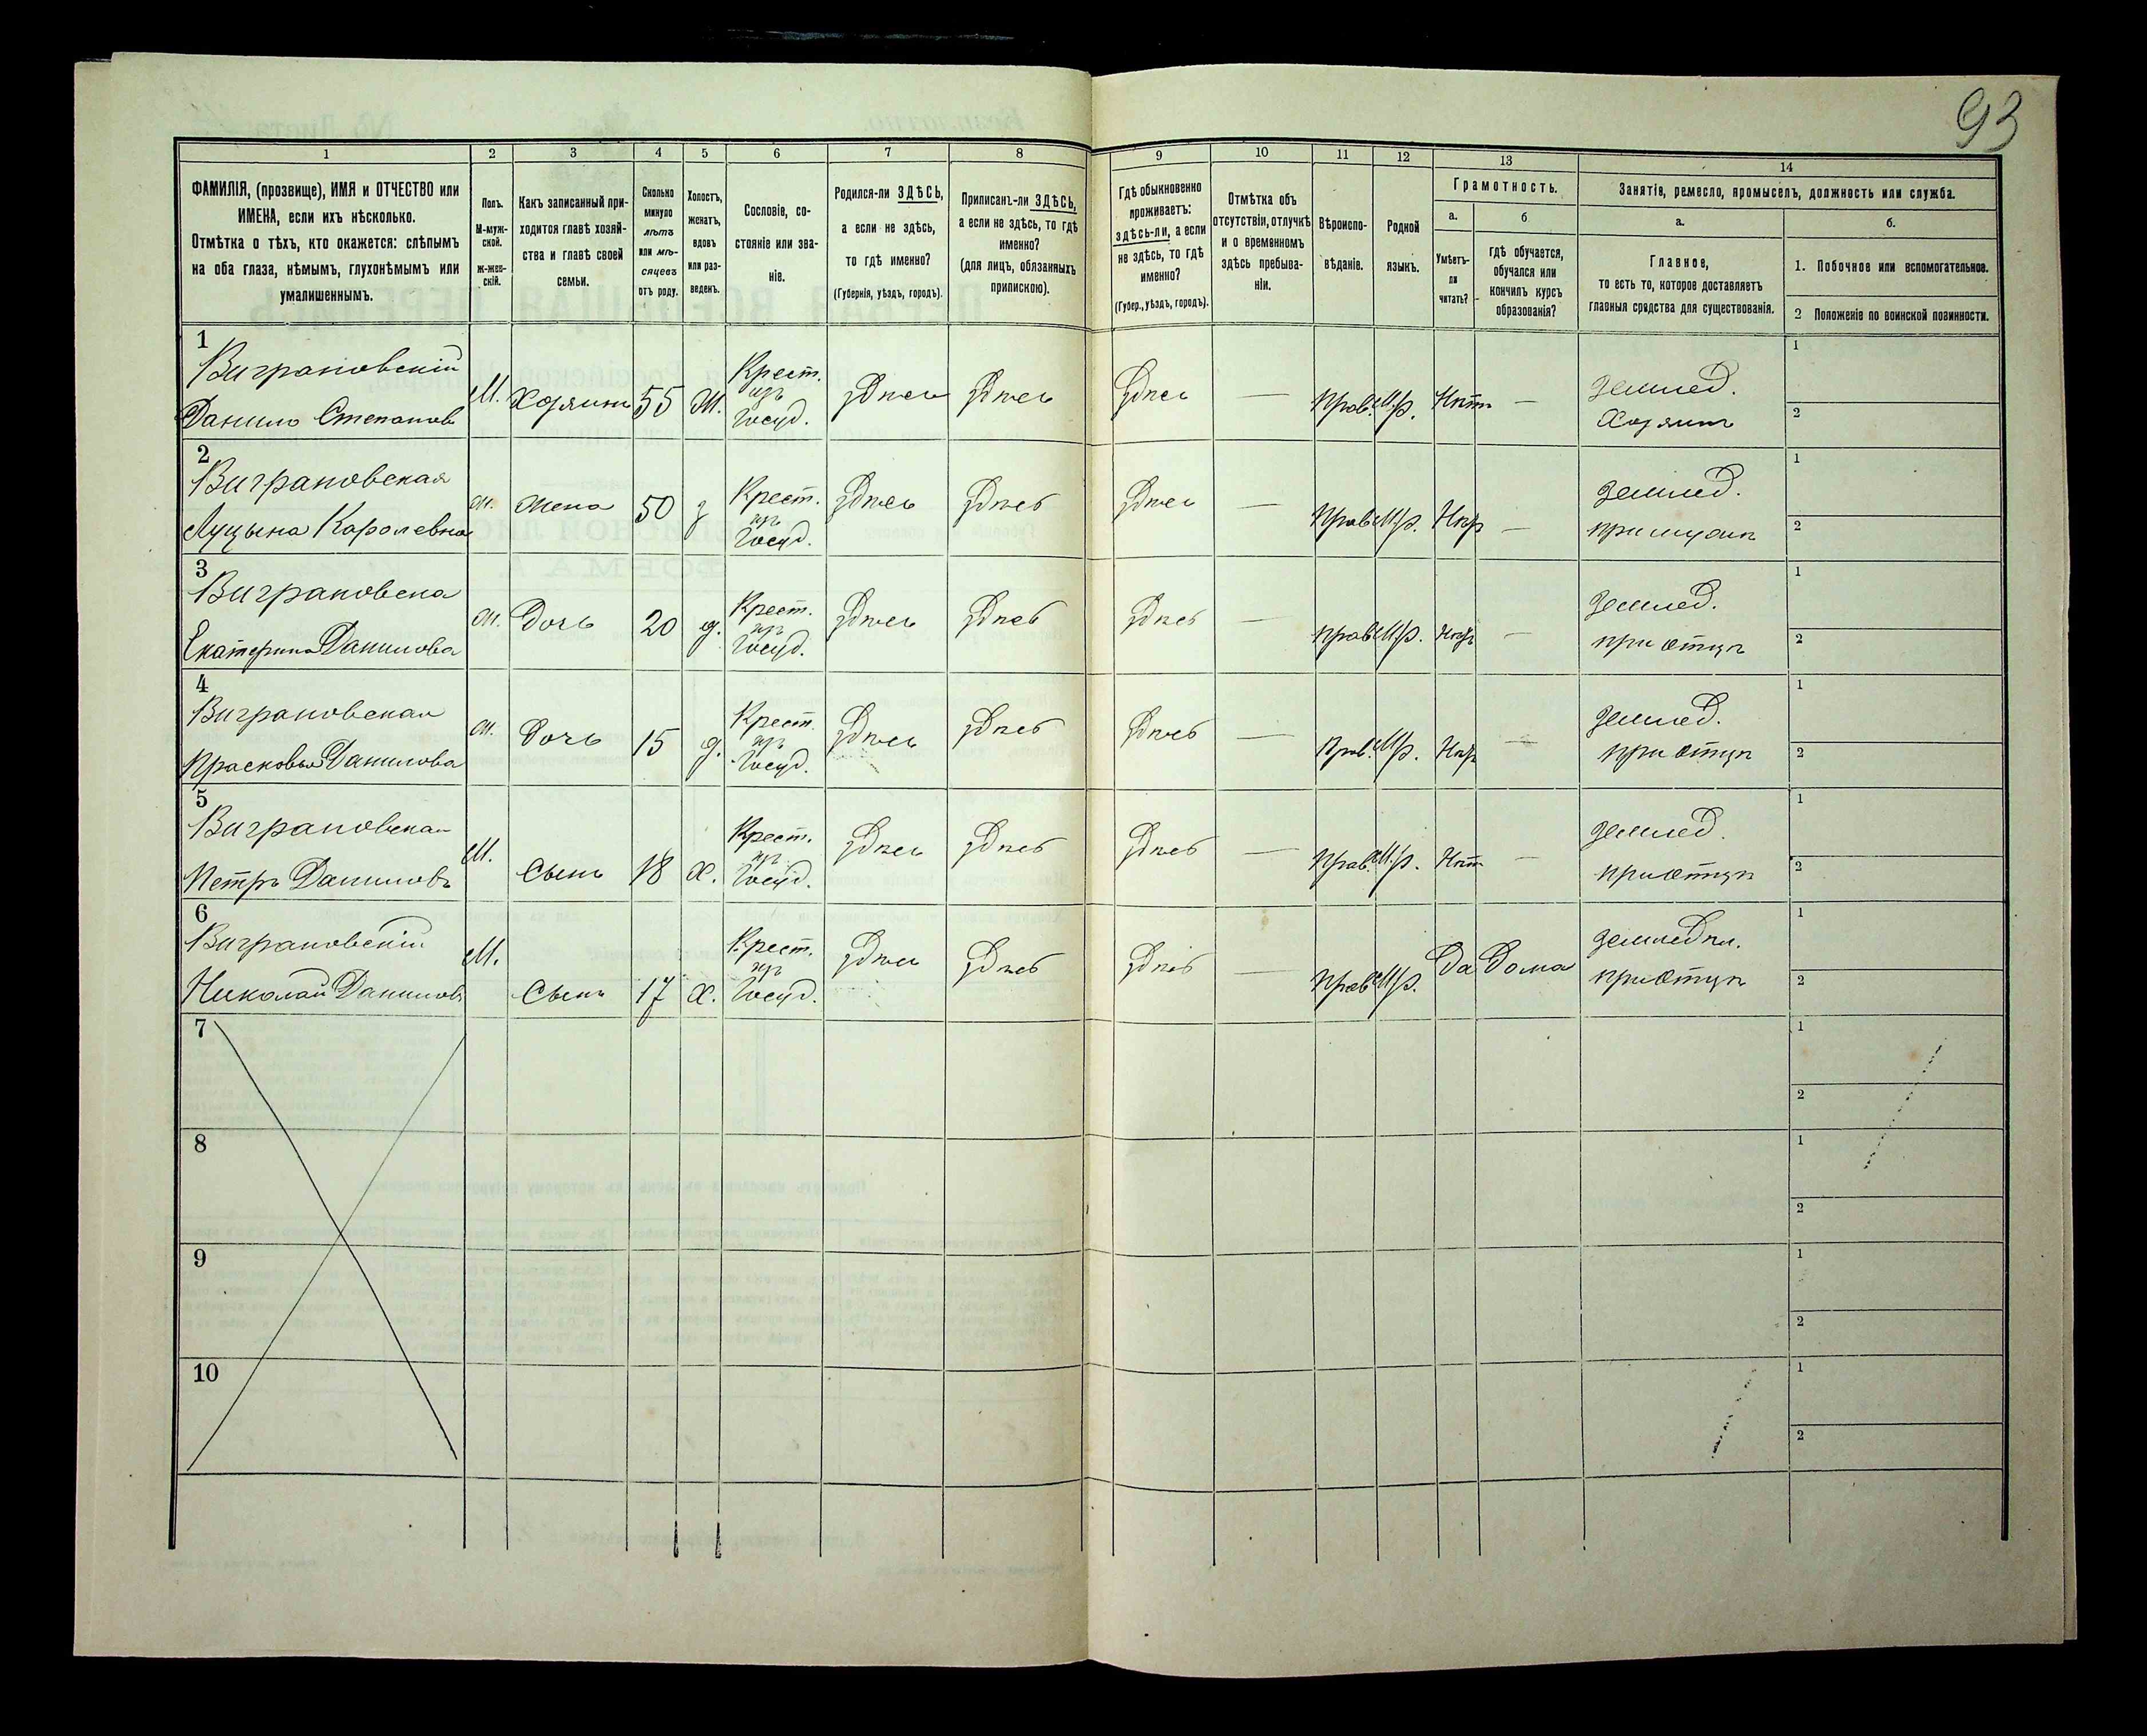 93
1
2
3
4
5
6
7
8
9
10
11
12
13
14
ФАМИЛІЯ, (прозвище), ИМЯ и ОТЧЕСТВО или
ИМЕНА, если ихъ нѣсколько.
Отмѣтка о тѣхъ, кто окажется: слѣпымъ
на оба глаза, нѣмымъ, глухонѣмымъ или
умалишеннымъ.
Полъ.
М-муж-
ской.
ж-жен-
скій.
Какъ записанный при-
ходится главѣ хозяй-
ства и главѣ своей
семьи.
Сколько
минуло
лѣтъ
или мѣ-
сяцевъ
отъ роду.
Холостъ,
женатъ,
вдовъ
или раз-
веденъ.
Сословіе, со-
стояніе или зва-
ніе.
Родился-ли ЗДѢСЬ,
а если не здѣсь,
то гдѣ именно?
(Губернія, уѣздъ, городъ).
Приписанъ-ли ЗДѢСЬ,
а если не здѣсь, то гдѣ
именно?
(для лицъ, обязанныхъ
припискою).
Гдѣ обыкновенно
проживаетъ:
здѣсь-ли, а если
не здѣсь, то гдѣ
именно?
(Губер., уѣздъ, городъ).
Отмѣтка объ
отсутствіи, отлучкѣ
и о временномъ
здѣсь пребыва-
ніи.
Вѣроиспо-
вѣданіе.
Родной
языкъ.
Грамотность.
а.
б
Умѣетъ-
ли
читать?
гдѣ обучается,
обучался или
кончилъ курсъ
образованія?
Занятіе, ремесло, промыселъ, должность или служба.
а.
б.
Главное,
то есть то, которое доставляетъ
главныя средства для существованія.
1. Побочное или вспомогательное.
2 Положеніе по воинской повинности.
1
Виграновскій
Данило Степановъ
М. Хозяинъ 55 Ж.
Крест.
изъ
Госуд.
здѣсь здѣсь здѣсь — Прав. М.р. Нѣтъ —
землед.
Хозяинъ
1
2
2
Виграновская
Луцына Каролевна
ж. жена 50 з
Крест.
изъ
Госуд.
здѣсь здѣсь здѣсь — Прав. М.р. —
землед.
при мужѣ
1
2
3
Виграновска
Екатерина Данилова
ж. Дочь 20 д.
Крест.
изъ
Госуд.
здѣсь здѣсь здѣсь — Прав. М.р. —
землед.
при отцѣ
1
2
4
Виграновская
Прасковья Данилова
ж. Дочь 15 д.
Крест.
изъ
Госуд.
здѣсь здѣсь здѣсь — Прав. М.р. —
землед.
при отцѣ
1
2
5
Виграновская
Петръ Даниловъ
М. Сынъ 18 Х.
Крест.
изъ
Госуд.
здѣсь здѣсь здѣсь — Прав. М.р. Нѣтъ —
землед.
при отцѣ
1
2
6
Виграновскій
Николай Даниловъ
М. Сынъ 17 Х.
Крест.
изъ
Госуд.
здѣсь здѣсь здѣсь — Прав. М.р. Да Дома
при отцѣ
1
2
7
1
2
8
1
2
9
1
2
10
1
2